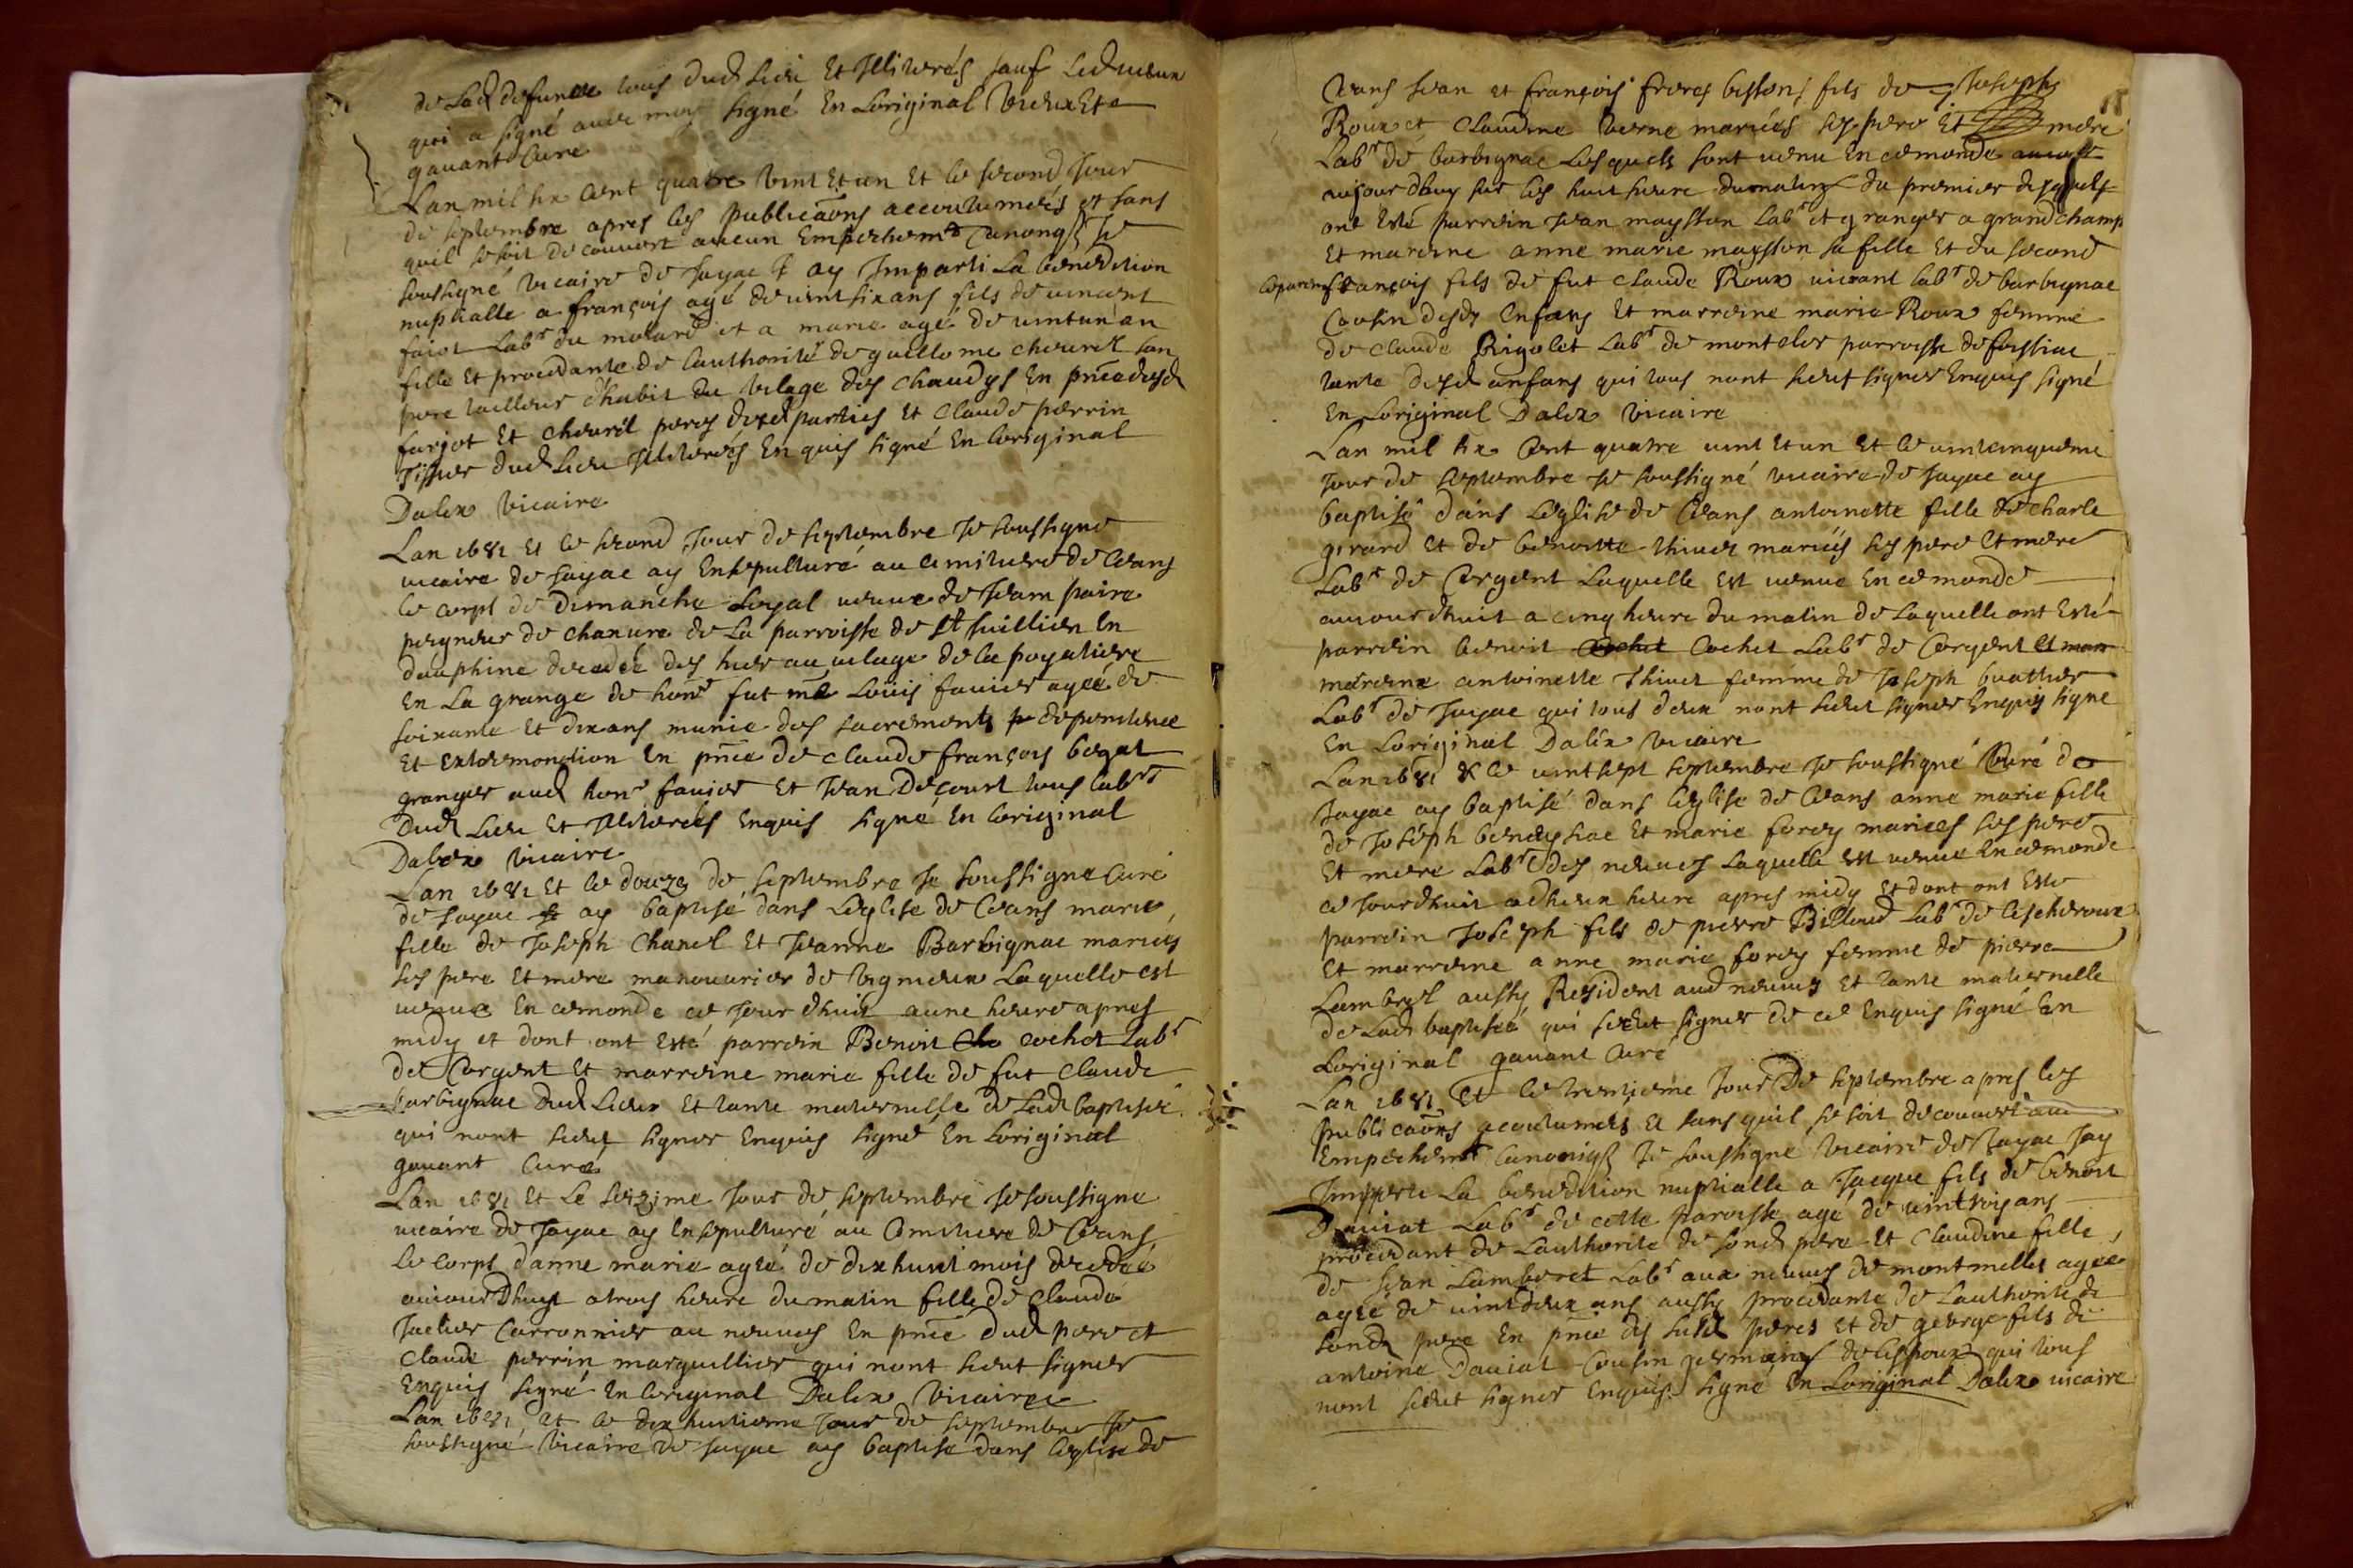 de Lad defuncte tous dud Lieu Et Illiterés sauf led vieux
qui a signé avec moy signé En Loriginal Vieux Et
gavant Curé
Lan mil six cent quatre vint Et un Et le second Jour
de septembre apres les publicaõns accoutumeés et sans
quil se soit decouvert aucun Empechemt Canoniq Je
soussigné vicaire de Jayac ay Imparti La benediction
nuptialle a françois agé de vint six ans fils de vincent
farjot Labr du molard et a marie agé de vint un an
fille Et procedante de lauthorité de guillome chevrel son
pere tailleur d'habit du vilage des chaudys En pñce desd
farjot Et chevrel peres desd parties Et Claude perrin
Tissier dud Lieu Illiterés En quis signé En Loriginal
Dalex vicaire
Lan 1681 Et le second Jour de septembre Je soussigné
vicaire de Jayac ay Ensepulturé au cemitiere de Ceans
le corps de Dimanche Loyal veuve de Jean paire
peigneur de chanvre de La parroisse de St Jullien En
dauphine decedeé des hier au vilage de la poyatiere
En La grange de honr fut mẽ Loüis favier ageé de
soixante Et dix ans munie des sacrements de penitence
Et Extremonction En pñce de Claude françois begat
granger aud honr favier Et Jean Decourt tous labrs
Dud Lieu Et Illiterés Enquis signé En Loriginal
Dalex vicaire
Lan 1681 Et le douze de septembre Je soussigné Curé
de Jayac ay baptisé dans Léglise de Ceans marie
fille de Joseph Chanel Et Jeanne Barbignac mariés
ses pere Et mere manouvrier de vignieux Laquelle est
venue En ce monde ce Jour dhuit a une heure apres
midy et dont ont Esté parrein Benoit Cla cochet Labr
de Corgent Et marreine marie fille de fut Claude
barbignac dud Lieux Et tante maternelle de Lad baptisée
qui nont sceut signer Enquis signé En Loriginal
gavant Curé
Lan 1681 Et Le seizime Jour de septembre Je soussigne
vicaire de Jayac ay Ensepulturé au Cemitiere de Ceans
le corps danne marie ageé de dix huit mois decedeé
aujourDhuy a trois heure du matin fille de Claude
Jaclier Carronnier au neuves En pñce dud pere et
Claude perrin marguillier qui nont sceut signer
Enquis signé En Loriginal Dalex vicaire
Lan 1681 et le dix huitieme Jour de septembre Je
soussigné vicaire de Jayac ay baptisé dans leglise de
Ceans Jean et françois freres bessons fils de Joseph
Roux et Claudine verne mariés ses pere Et mere
Labr de barbignac Lesquels sont venu En ce monde
aujourdhuy sur les huit heure du matin du premier desquels
ont Esté parrein Jean maysson Labr et granger a grandchamp
Et mareine anne marie maysson sa fille Et du second
le parrein françois fils de fut Claude Roux vivant labr de barbignac
Cousin desds Enfans Et marreine marie Roux femme
de Claude Rigolet Labr de paroisse de foissiac
tante desd anfans qui tous nont sceut signer Enquis signé
En Loriginal Dalex vicaire
Lan mil six Cent quatre vint Et un Et le vintcinquieme
Jour de septembre Je soussigné vicaire de Jayac ay
baptisé dans Leglise de Ceans antoinette fille de charle
girard Et de benoitte thivet mariés ses pere Et mere
Labr de Corgent Laquelle Est venue En ce monde
aujourdhuit a cinq heure du matin de Laquelle ont Esté
parrein benoit Cochet Cochet Labr de Corgent Et mar
mareine antoinette thivet femme de Joseph buathier
Labr de Jayac qui tous deux nont sceut signer Enquis signe
En Loriginal Dalex vicaire
Lan 1681 & le vintsept septembre Je soussigné Curé de
Jayac ay baptisé dans leglise de Ceans anne marie fille
de Joseph Et marie forey mariés ses pere
Et mere Labr des neuves Laquelle Est venue En ce monde
ce Jourdhuit a deux heure apres midy Et dont ont Esté
parrein Joseph fils de pierre Billoud Labr de Lescheroux
Et marreine anne marie forey femme de pierre
Lambrel aussy Resident aud neuves Et tante maternelle
de Lad baptiseé qui sceut signer de ce Enquis signé En
Loriginal gavant Curé
Lan 1681 Et le trentieme Jour De septembre apres les
Publicaõns acoutumés et sans quil se soit decouvert auc
Empechemt Canoniq Je soussigné vicaire de Jayac Jay
Imparti La benediction nuptialle a Jacque fils de benoit
Daviat Labr de cette paroisse agé de vint trois ans
procedant de Lauthorite de sond pere Et Claudine fille
de Jean Lamberet Labr aux neuves de montmelles ageé
ageé de vint deux ans aussy procedante de Lauthorité de
sond pere En pñce des susd peres Et de george fils de
antoine Daviat Cousin germain de Lespoux qui tous
nont sceut signer Enquis signé En Loriginal Dalex vicaire